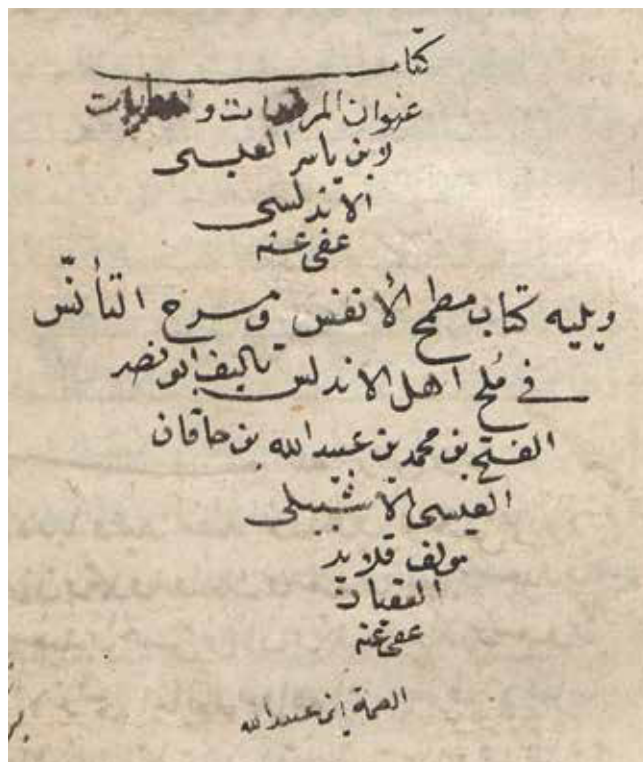 كتاب
عنوان المرقصات والمطربات
لابن ياسر العبسى
الاندلسى
عفى عنه
ويليه كتاب مطمح الأنفس ومسرح التأنس
في مُلح اهل الاندلس تاليف ابو نصر
الفتح بن محمد بن عبيد الله بن خاقان
القيسى الاشبيلى
مولف قلايد
العقيان
عفى عنه
عبيد الله